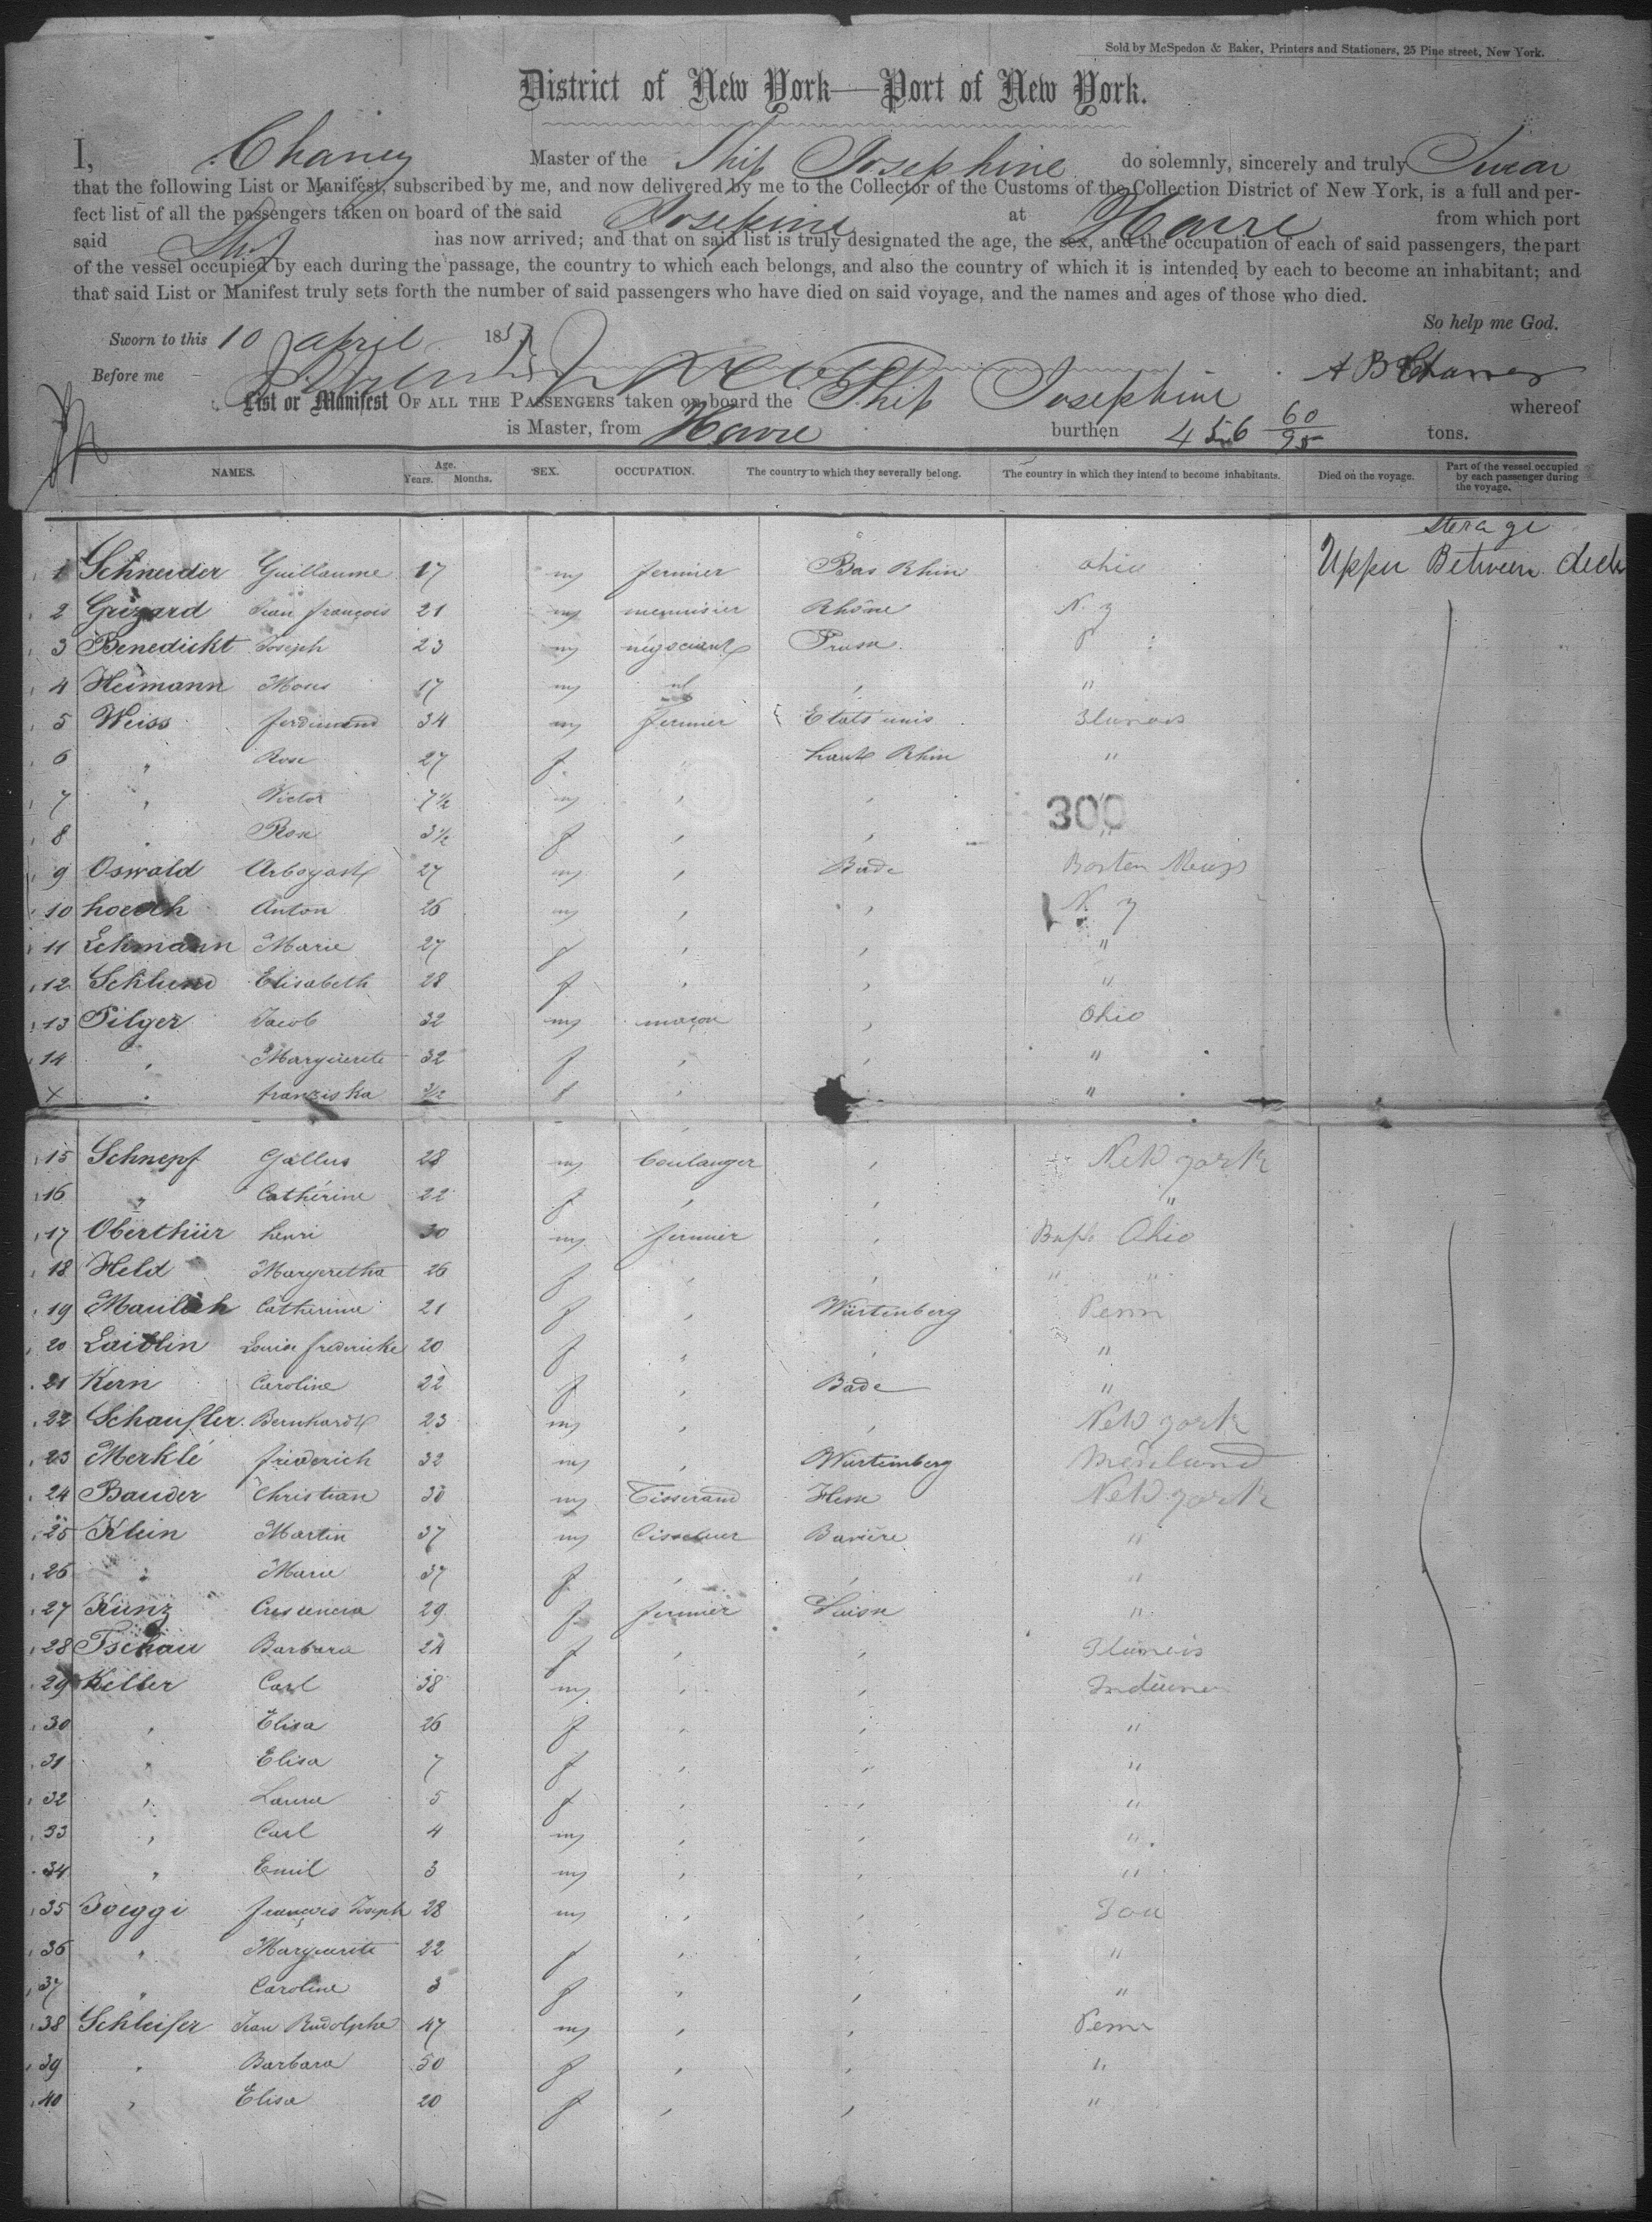 Sold by McSpedon & Baker, Printers and Stationers, 25 Pine street, New York.
District of New York—Port of New York.
I, Chaney Master of the Ship Josephine do solemnly, sincerely and truly Swear
that the following List or Manifest, subscribed by me, and now delivered by me to the Collector of the Customs of the Collection District of New York, is a full and per-
fect list of all the passengers taken on board of the said Josephine at Havre from which port
said Ship has now arrived; and that on said list is truly designated the age, the sex, and the occupation of each of said passengers, the part
of the vessel occupied by each during the passage, the country to which each belongs, and also the country of which it is intended by each to become an inhabitant; and
that said List or Manifest truly sets forth the number of said passengers who have died on said voyage, and the names and ages of those who died.
So help me God.
Sworn to this 10 april 185
Before me
A B Chaney
List or Manifest OF ALL THE PASSENGERS taken on board the Ship Josephine whereof
is Master, from Havre burthen 456 60/95 tons.
NAMES. Age. Years. Months. SEX. OCCUPATION. The country to which they severally belong. The country in which they intend to become inhabitants. Died on the voyage. Part of the vessel occupied by each passenger during the voyage.
Sterage
1 Schneider Guillaume 17 m fermier Bas Rhin ohio Upper Between deck
2 Grizard Jean françois 21 m menuisier Rhône N. y
3 Benedickt Joseph 23 m négociant Prusse "
4 Heimann Moses 17 m "
5 Weiss ferdinand 34 m fermier Etats unis Ilunois
6 " Rose 27 f haut Rhin "
7 " Victor 7½ m " "
300
8 " Rose 3½ f " " "
9 Oswald Arbogast 27 m " Bade Boston
10 Anton 26 m " " N. y
11 Lehmann Marie 27 f " " "
12 Schlund Elisabeth 28 f " " "
13 Pilger Jacob 32 m maçon " Ohio
14 " Marguerite 32 f " " "
x " franziska f " "
15 Schnepf Gallus 28 m boulanger " New york
16 " Cathérine 22 f " " "
17 Oberthür henri 30 m fermier " Ohio
18 Held Margeretha 26 f " " " "
19 Catherine 21 f " Würtenberg Penn
20 Laiblin Louise fredericke 20 f " " "
21 Kern Caroline 22 f " Bade "
22 Schaufler Bernhardt 23 m " " New york
23 Merklé friederich 32 m " Würtemberg
24 Bauder Christian 30 m Tisserand Hesse New york
25 Klein Martin 37 m Bavière "
26 " Marie 37 f " " "
27 Künz Crescencia 29 f fermier Suisse "
28 Tschau Barbara 24 f " " Ilunois
29 Keller Carl 38 m " " Indiana
30 " Elisa 26 f " " "
31 " Elisa 7 f " " "
32 " Laura 5 f " " "
33 " Carl 4 m " " "
34 " Emil 3 m " " "
35 Joeggi françois Joseph 28 m " "
36 " Marguerite 22 f " " "
37 " Caroline 3 f " " "
38 Schleifer Jean Rudolphe 47 m " " Penn
39 " Barbara 50 f " " "
40 " Elisa 20 f " " "